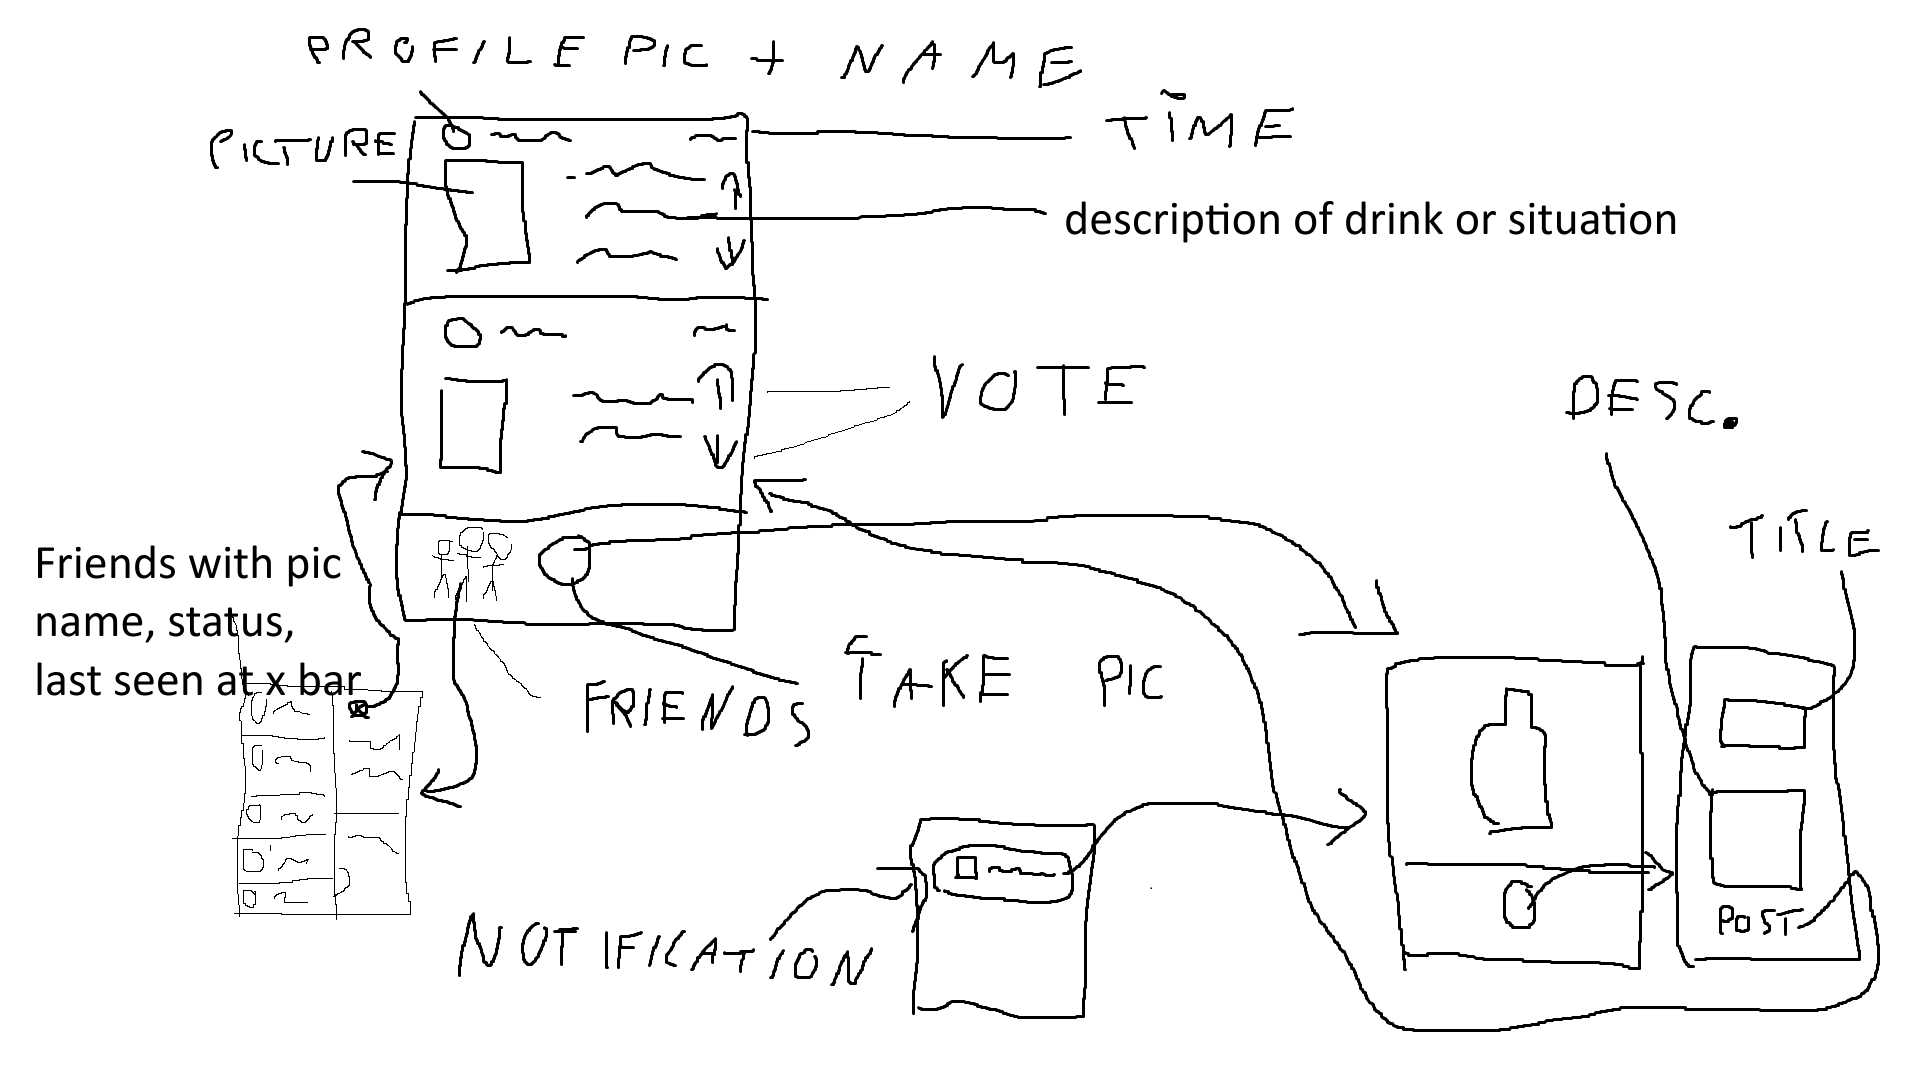 PROFILE PIC + NAME
TIME
PICTURE
description of drink or situation
VOTE
DESC.
TITLE
Friends with pic
name, status,
last seen at x bar
TAKE PIC
FRIENDS
POST
NOTIFICATION